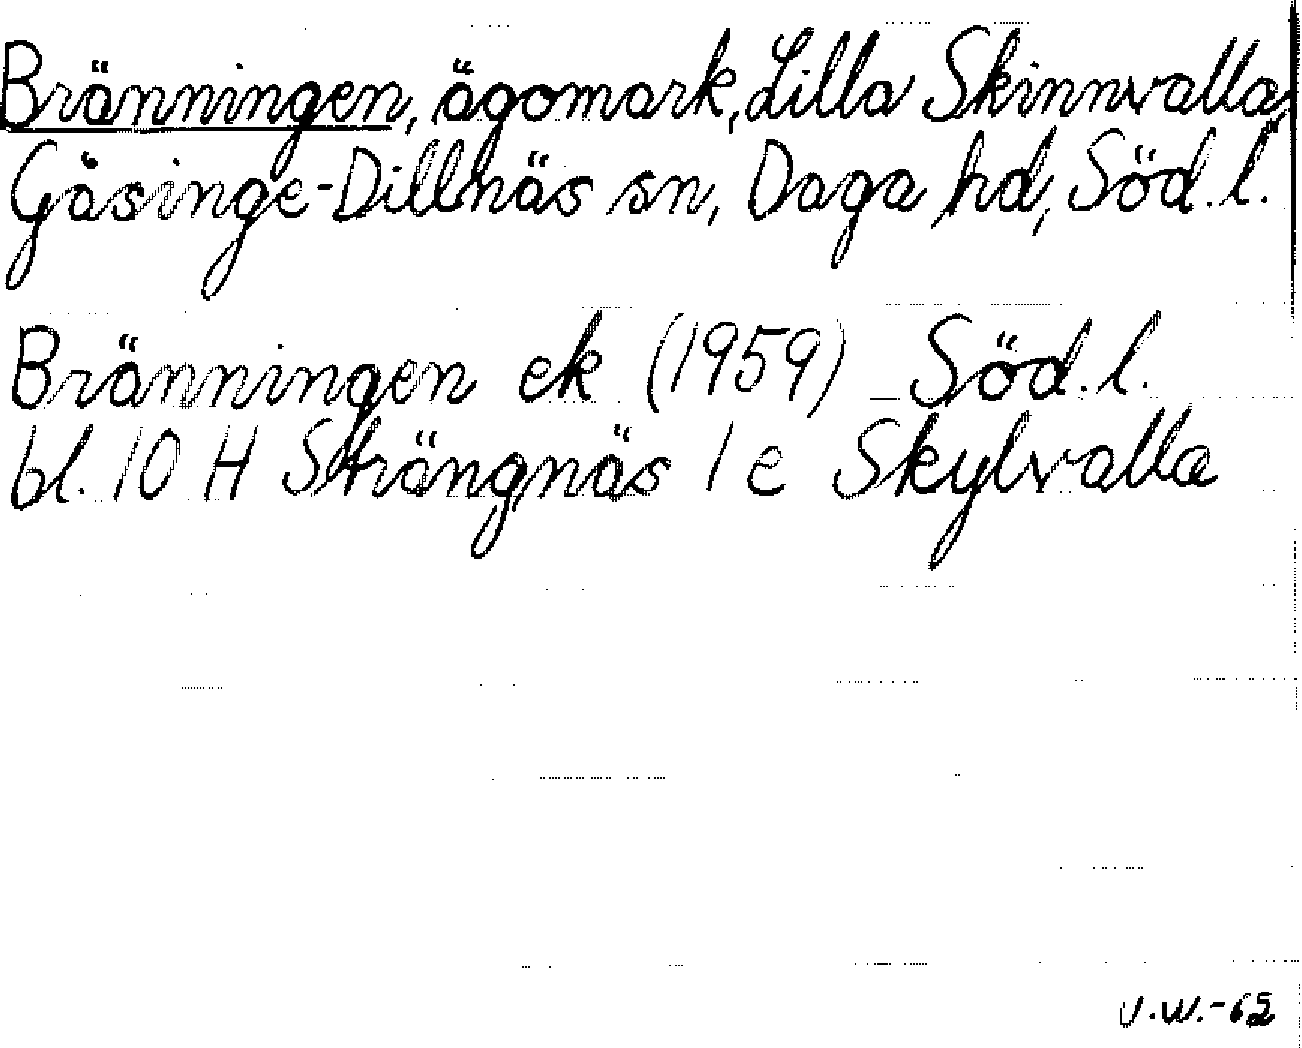 Bränningen, ägomark, Lilla Skinnvalla,
Gåsinge-Dillnäs sn, Daga hd, Söd. l.
Bränningen ek (1959) Söd. l.
bl. 10 H Strängnäs 1 e Skylvalla
V.W.-62